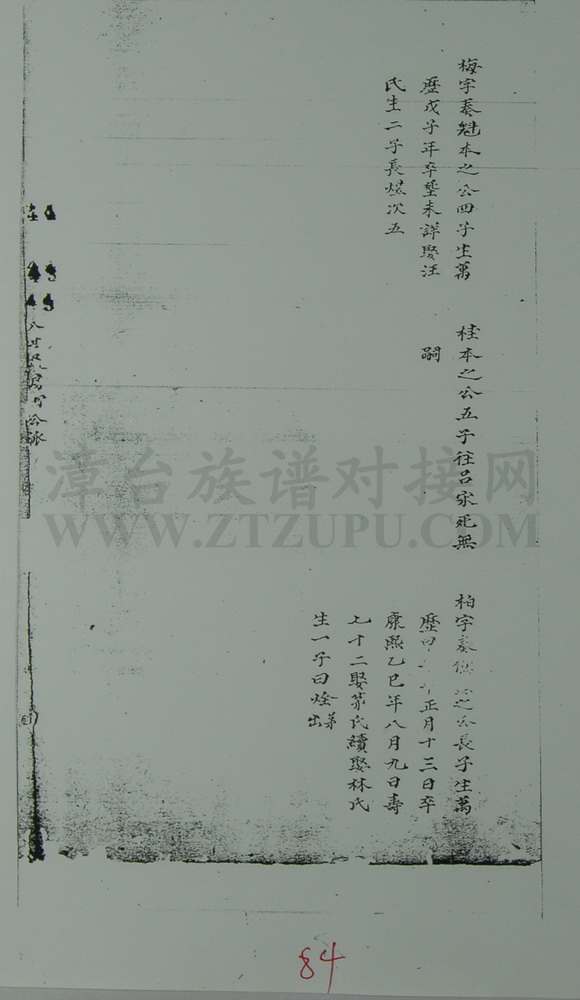 梅字奏魁本之公四子生萬
歷戊子年卒塋未詳娶汪
氏生二子長煖次五
桂本之公五子往呂宋死無
嗣
柏字奏 之公長子生萬
歷 正月十三日卒
康熙乙巳年八月九日壽
七十二娶茅氏續娶林氏
生一子曰烇茅出
漳台族谱对接网
WWW.ZTZUPU.COM
84